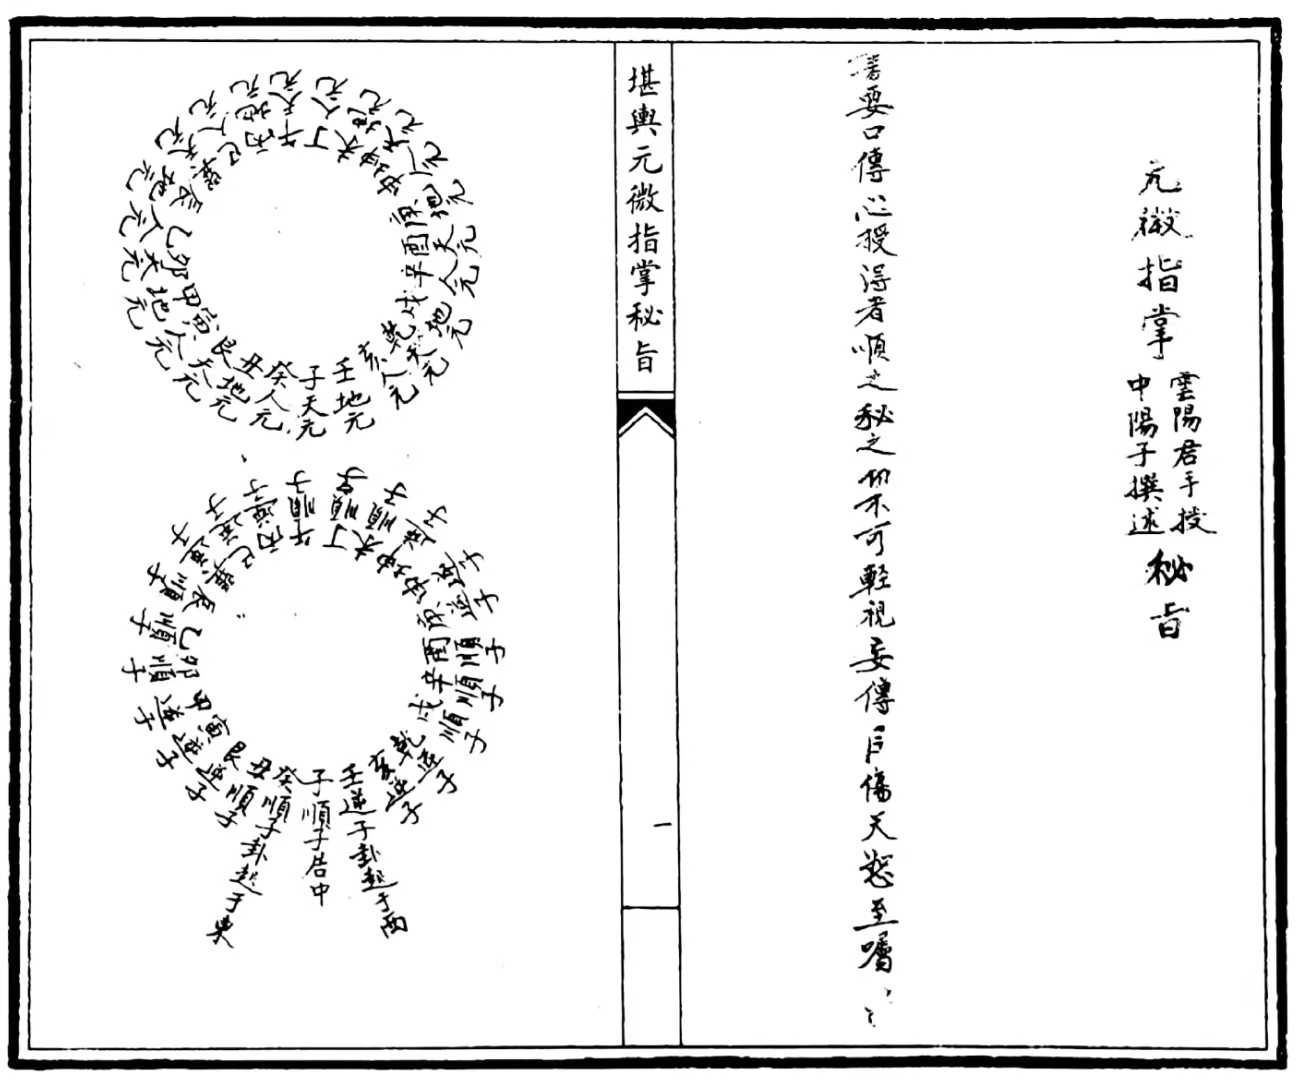 元微指掌
雲陽君手授
中陽子撰述
秘旨
要口傳心授得者順之秘之切不可輕視妄傳自傷天怒至囑
堪輿元微指掌秘旨
一
子天元
癸人元
丑地元
艮天元
寅人元
甲地元
卯天元
乙人元
辰地元
巽天元
巳人元
丙地元
午天元
丁人元
未地元
坤天元
申人元
庚地元
酉天元
辛人元
戌地元
乾天元
亥人元
壬地元
子順子告中
癸順子卦起于東
丑順子
艮逆子
寅逆子
甲逆子
卯順子
乙順子
辰順子
巽逆子
巳逆子
丙逆子
午順子
丁順子
未順子
坤逆子
申逆子
庚逆子
酉順子
辛順子
戌順子
乾逆子
亥逆子
壬逆子卦起于西